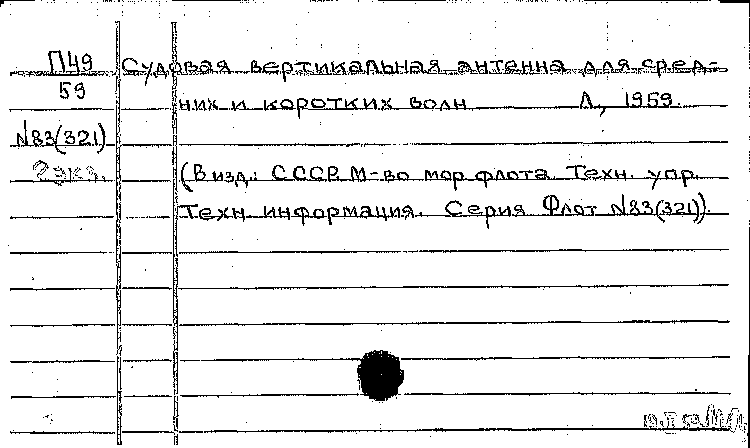 П49
59
N83(321)
2 экз.
Судовая вертикальная антенна для сред-
них и коротких волн Л., 1959.
(В изд.: СССР. М-во мор. флота. Техн. упр.
Техн. информация. Серия Флот N83(321)).